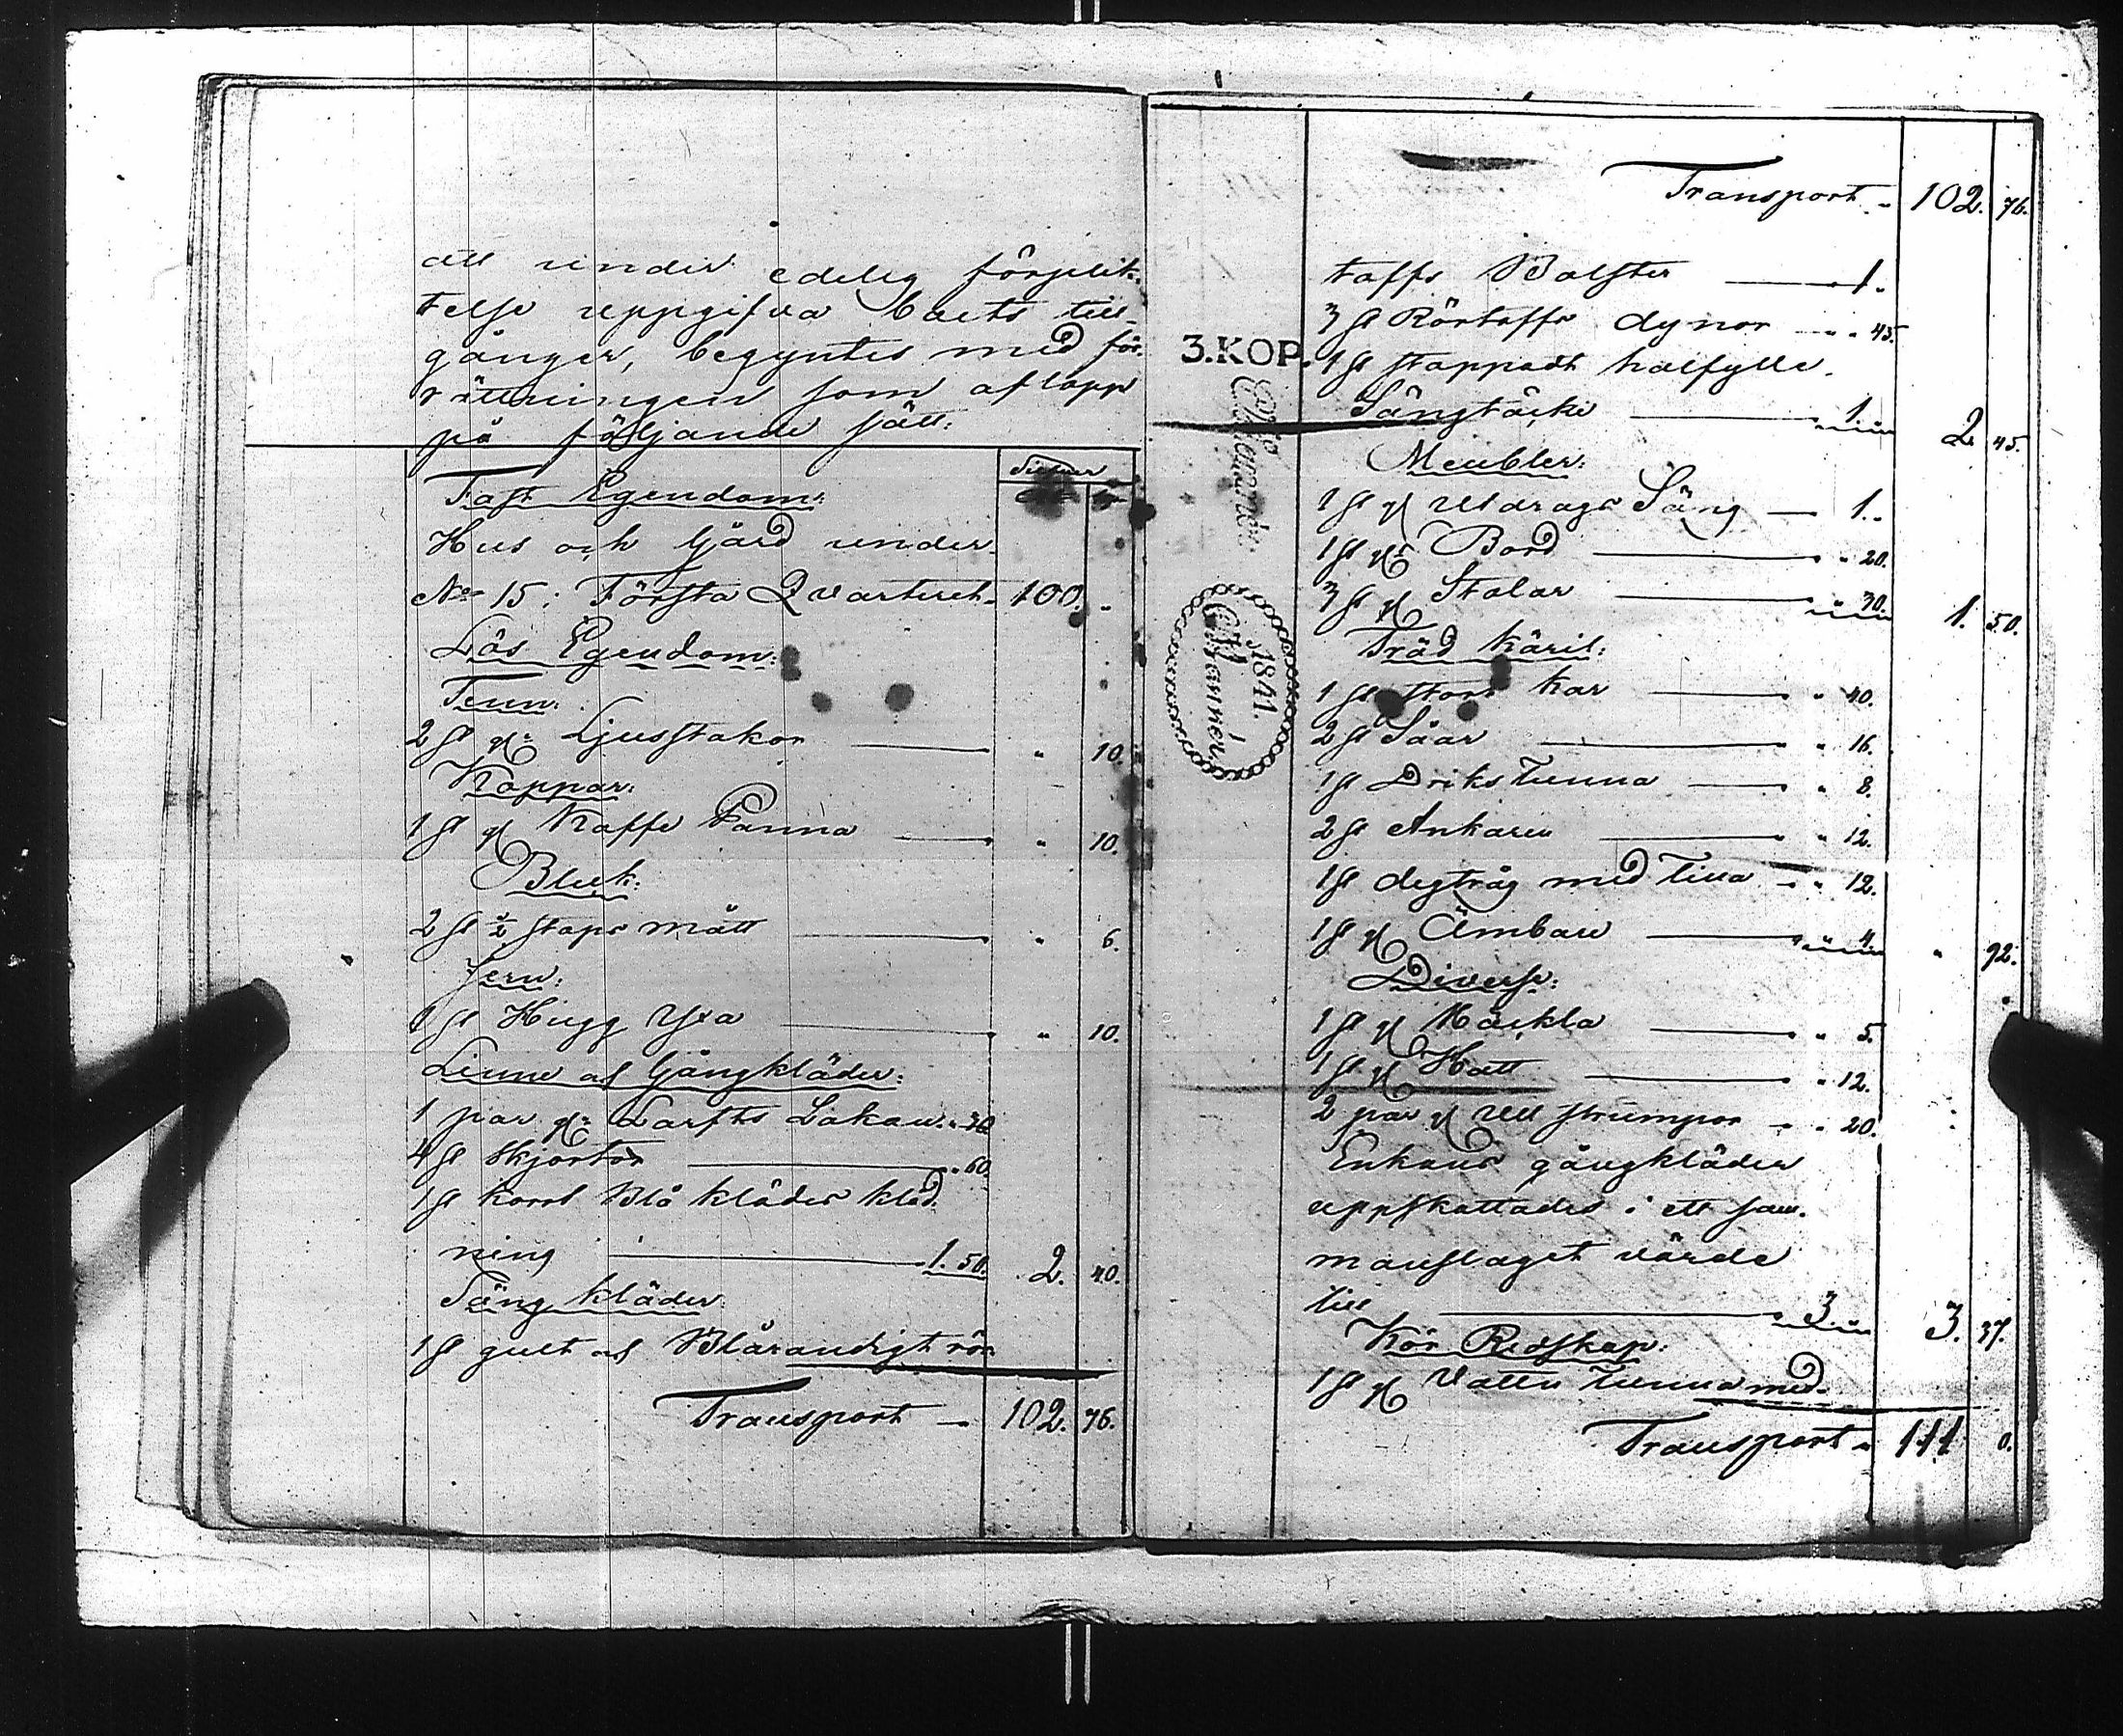 att under edelig förplik-
telse uppgifva boets till-
gångar, begyntes med för-
rättningen som aflopp
på följande sätt:
Silfver
Fast Egendom:
Hus och Gård under
No 15 i Första Qvarteret 100. "
Lös Egendom:
Tenn:
2 st gl Ljusstakar " 10.
Koppar:
1 st gl Kaffe Panna " 10.
Bleck:
2 st ½ stops mått " 6.
Jern:
1 st Hugg Yxa " 10.
Linne och Gångkläder:
1 par gl Larfts Lakan " 30
4 st Skjortor " 60
1 st korrt Blå kläder kläd-
ning 1. 50. 2. 40.
Säng kläder:
1 st gult och Blårandigt rör-
Transport 102. 76.
Transport 102. 76.
taffs Bolster 1. "
3 st Rörtaffs dynor " 45.
1 st stoppadt halfylle
Sängtäcke 1. " 2. 45.
Meubler:
1 st gl Utdrags Säng 1. "
1 st gl Bord " 20.
3 st gl Stolar " 30. 1. 50.
Träd Käril:
1 st stort kar " 40.
2 st Såar " 16.
1 st Driks Tunna " 8.
2 st Ankare " 12.
1 st degtråg med Tina " 12.
1 st gl Ämbare " 4. " 92.
Diverse:
1 st gl Häckla " 5.
1 st gl Hatt " 12.
2 par gl Ull strumpor " 20.
Enkans gångkläder
uppskattades i ett sam-
manslaget värde
till 3. " 3. 37.
Kör Redskap:
1 st gl Vatten Tunna med
Transport 111 0.
3.KOP.
1841.